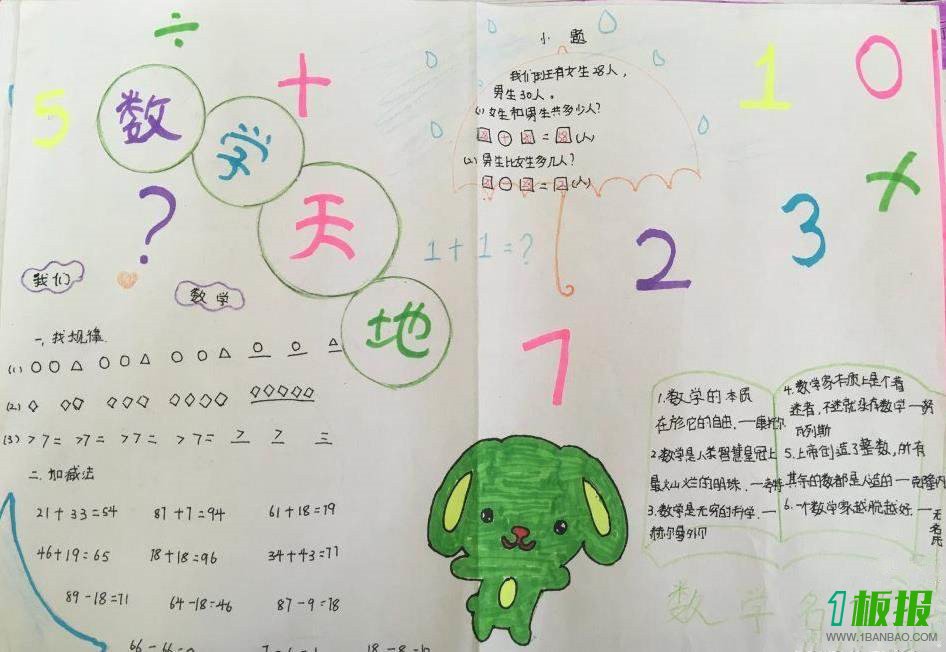 ÷
5
+
数学天地
?
我们
数学
一、找规律
(1) ○ ○ △ ○ ○ △ ○ ○ △ ○ ○ △
(2) ◇ ◇◇ ◇◇◇ ◇◇◇◇ ◇◇◇◇◇
(3) > 7 = > 7 = > 7 = > 7 =
二、加减法
21+33=54 87+7=94 61+18=79
46+19=65 78+18=96 34+43=77
89-18=71 64-18=46 87-9=78
66-66=
18-8=
小题
我们班有女生28人,
男生30人。
(1)女生和男生共多少人?
28 + 30 = 58 (人)
(2)男生比女生多几人?
= 2 (人)
1+1=?
1
0
2
3
×
7
1.数学的本质
在於它的自由.一康托尔
2.数学是人类智慧皇冠上
最灿烂的明珠.一考特
3.数学是无穷的科学.一
赫尔曼外尔
4.数学家本质上是个着
迷者,不迷就没有数学一努
瓦列斯
5.上帝创造了整数,所有
其余的数都是人造的一克隆内
6.一个数学家越脱越好.一无名氏
数学名
1板报
WWW.1BANBAO.COM